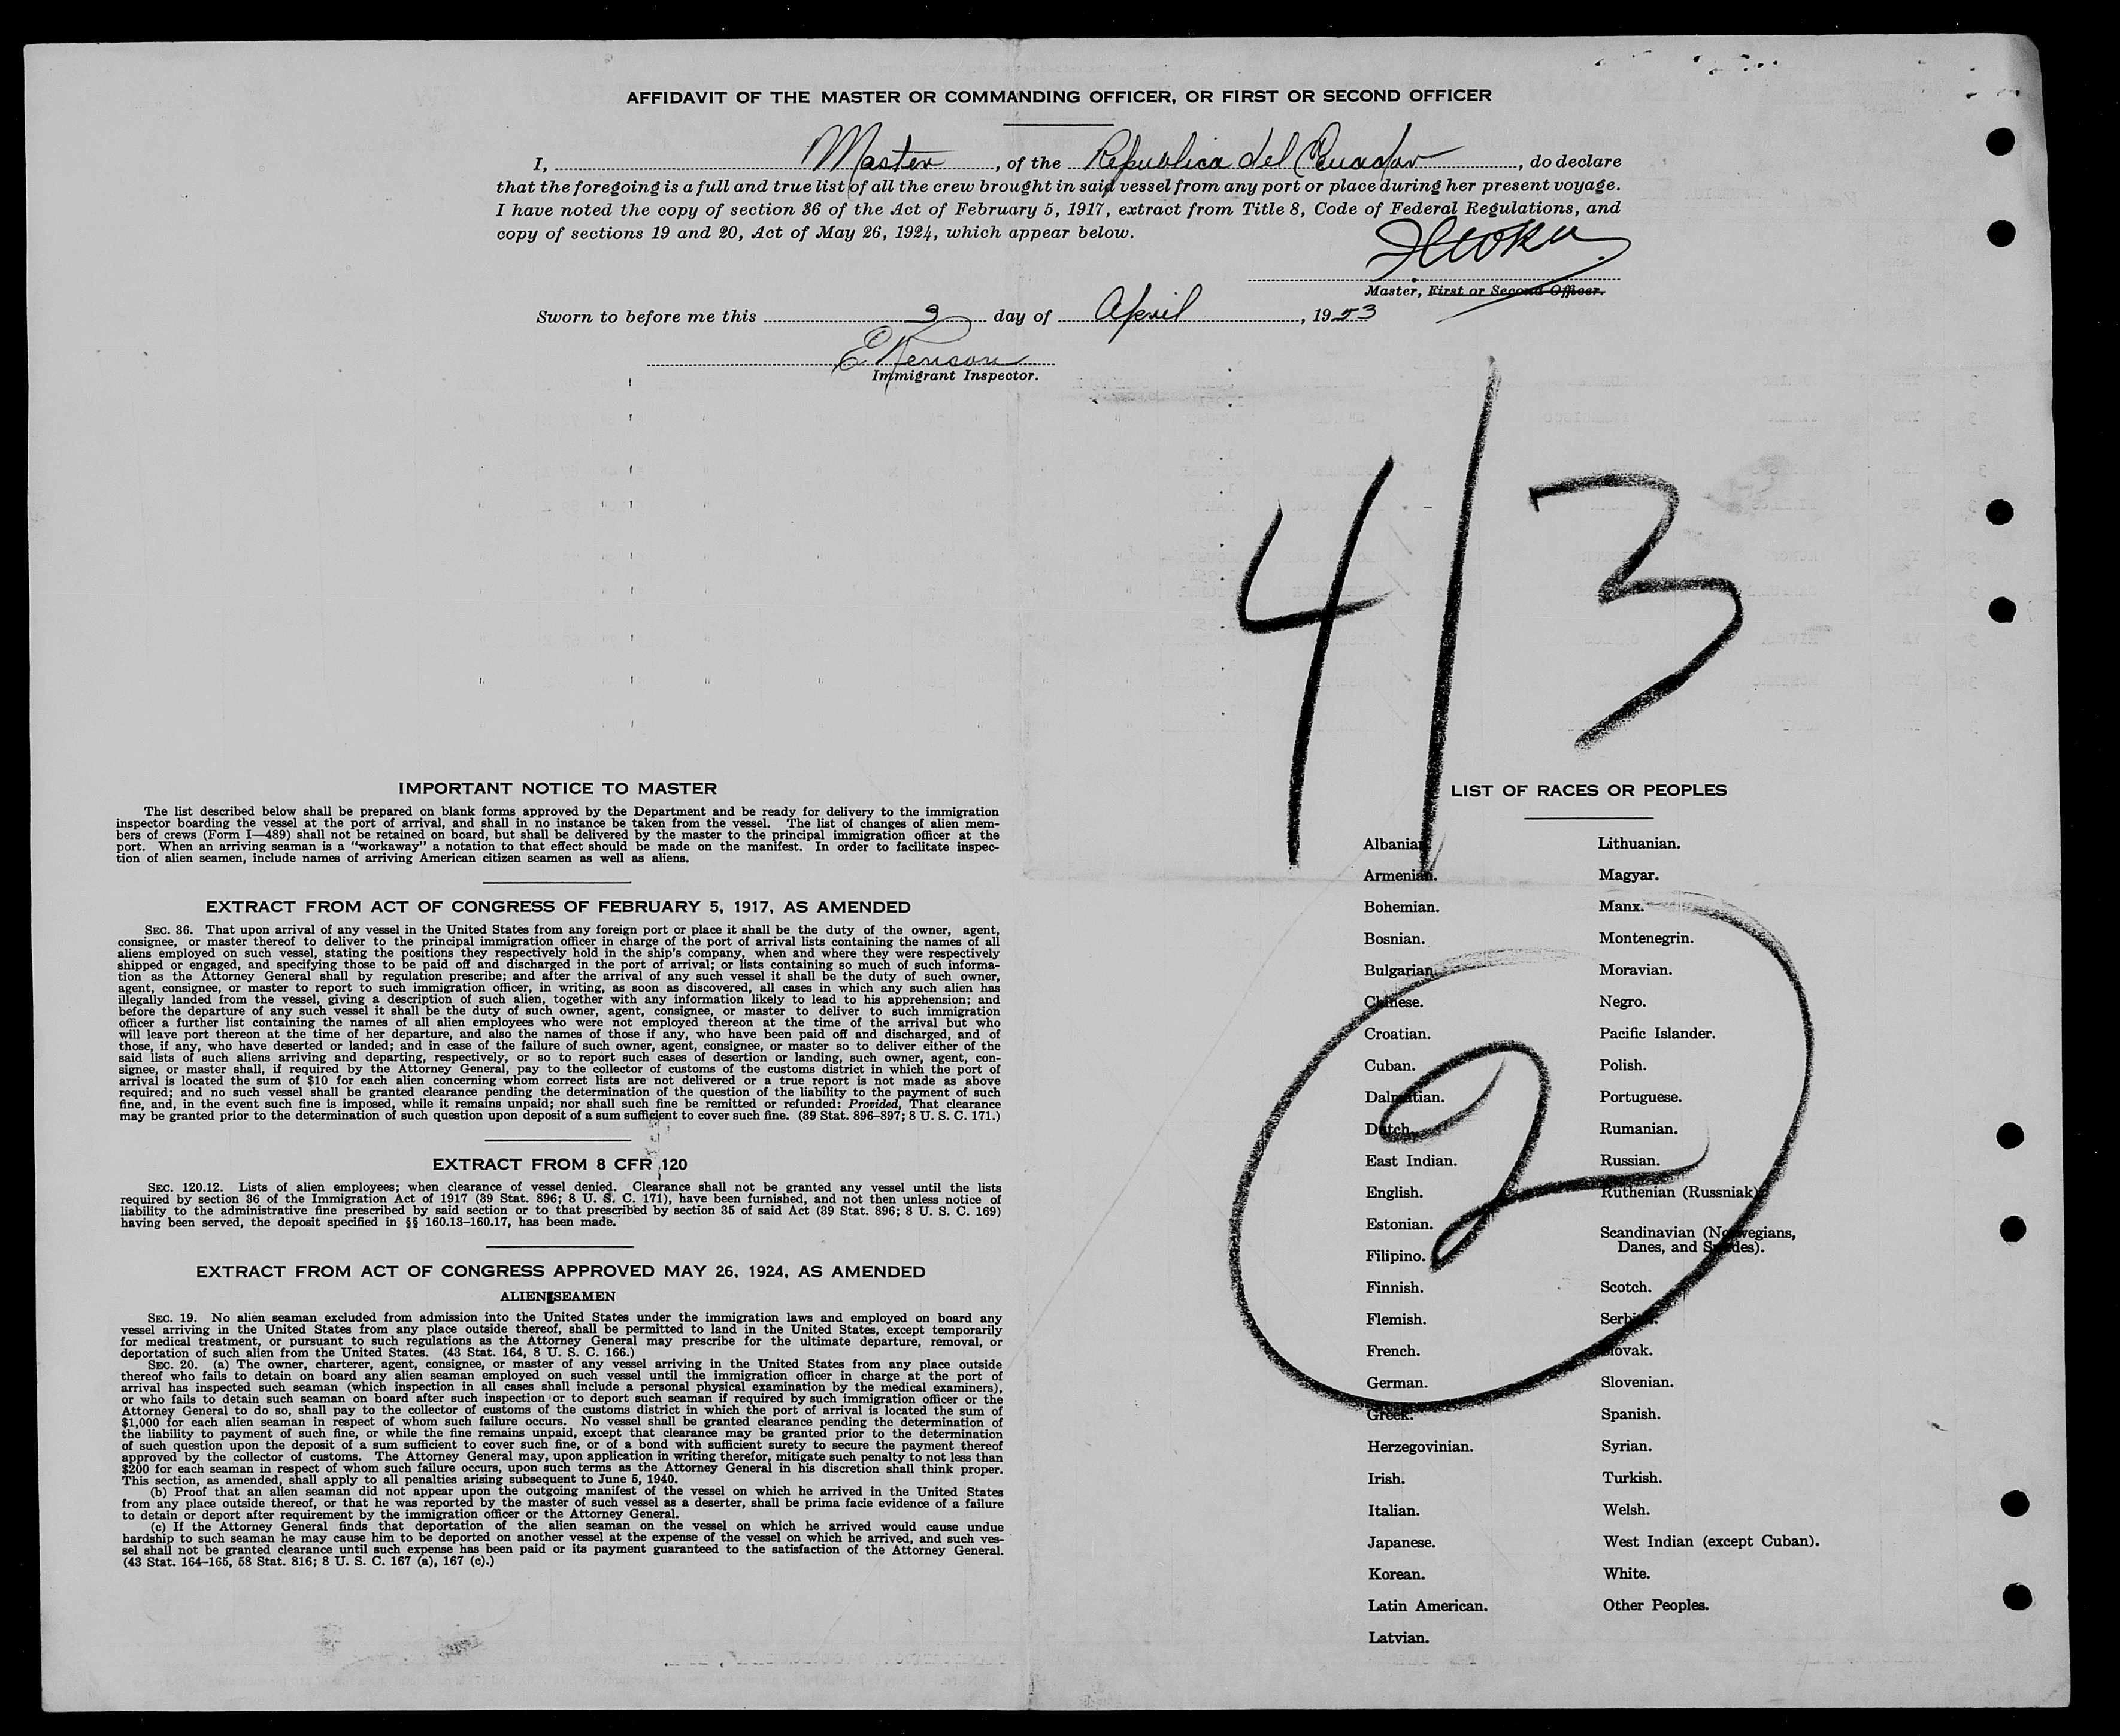 AFFIDAVIT OF THE MASTER OR COMMANDING OFFICER, OR FIRST OR SECOND OFFICER
I, Master, of the Republica del Ecuador, do declare
that the foregoing is a full and true list of all the crew brought in said vessel from any port or place during her present voyage.
I have noted the copy of section 36 of the Act of February 5, 1917, extract from Title 8, Code of Federal Regulations, and
copy of sections 19 and 20, Act of May 26, 1924, which appear below.
Master, First or Second Officer.
Sworn to before me this 3 day of April, 1953
Immigrant Inspector.
4/3
IMPORTANT NOTICE TO MASTER
The list described below shall be prepared on blank forms approved by the Department and be ready for delivery to the immigration
inspector boarding the vessel at the port of arrival, and shall in no instance be taken from the vessel. The list of changes of alien mem-
bers of crews (Form I—489) shall not be retained on board, but shall be delivered by the master to the principal immigration officer at the
port. When an arriving seaman is a "workaway" a notation to that effect should be made on the manifest. In order to facilitate inspec-
tion of alien seamen, include names of arriving American citizen seamen as well as aliens.
EXTRACT FROM ACT OF CONGRESS OF FEBRUARY 5, 1917, AS AMENDED
SEC. 36. That upon arrival of any vessel in the United States from any foreign port or place it shall be the duty of the owner, agent,
consignee, or master thereof to deliver to the principal immigration officer in charge of the port of arrival lists containing the names of all
aliens employed on such vessel, stating the positions they respectively hold in the ship's company, when and where they were respectively
shipped or engaged, and specifying those to be paid off and discharged in the port of arrival; or lists containing so much of such informa-
tion as the Attorney General shall by regulation prescribe; and after the arrival of any such vessel it shall be the duty of such owner,
agent, consignee, or master to report to such immigration officer, in writing, as soon as discovered, all cases in which any such alien has
illegally landed from the vessel, giving a description of such alien, together with any information likely to lead to his apprehension; and
before the departure of any such vessel it shall be the duty of such owner, agent, consignee, or master to deliver to such immigration
officer a further list containing the names of all alien employees who were not employed thereon at the time of the arrival but who
will leave port thereon at the time of her departure, and also the names of those if any, who have been paid off and discharged, and of
those, if any, who have deserted or landed; and in case of the failure of such owner, agent, consignee, or master so to deliver either of the
said lists of such aliens arriving and departing, respectively, or so to report such cases of desertion or landing, such owner, agent, con-
signee, or master shall, if required by the Attorney General, pay to the collector of customs of the customs district in which the port of
arrival is located the sum of $10 for each alien concerning whom correct lists are not delivered or a true report is not made as above
required; and no such vessel shall be granted clearance pending the determination of the question of the liability to the payment of such
fine, and, in the event such fine is imposed, while it remains unpaid; nor shall such fine be remitted or refunded: Provided, That clearance
may be granted prior to the determination of such question upon deposit of a sum sufficient to cover such fine. (39 Stat. 896–897; 8 U. S. C. 171.)
EXTRACT FROM 8 CFR 120
SEC. 120.12. Lists of alien employees; when clearance of vessel denied. Clearance shall not be granted any vessel until the lists
required by section 36 of the Immigration Act of 1917 (39 Stat. 896; 8 U. S. C. 171), have been furnished, and not then unless notice of
liability to the administrative fine prescribed by said section or to that prescribed by section 35 of said Act (39 Stat. 896; 8 U. S. C. 169)
having been served, the deposit specified in §§ 160.13–160.17, has been made.
EXTRACT FROM ACT OF CONGRESS APPROVED MAY 26, 1924, AS AMENDED
ALIEN SEAMEN
SEC. 19. No alien seaman excluded from admission into the United States under the immigration laws and employed on board any
vessel arriving in the United States from any place outside thereof, shall be permitted to land in the United States, except temporarily
for medical treatment, or pursuant to such regulations as the Attorney General may prescribe for the ultimate departure, removal, or
deportation of such alien from the United States. (43 Stat. 164, 8 U. S. C. 166.)
SEC. 20. (a) The owner, charterer, agent, consignee, or master of any vessel arriving in the United States from any place outside
thereof who fails to detain on board any alien seaman employed on such vessel until the immigration officer in charge at the port of
arrival has inspected such seaman (which inspection in all cases shall include a personal physical examination by the medical examiners),
or who fails to detain such seaman on board after such inspection or to deport such seaman if required by such immigration officer or the
Attorney General to do so, shall pay to the collector of customs of the customs district in which the port of arrival is located the sum of
$1,000 for each alien seaman in respect of whom such failure occurs. No vessel shall be granted clearance pending the determination of
the liability to payment of such fine, or while the fine remains unpaid, except that clearance may be granted prior to the determination
of such question upon the deposit of a sum sufficient to cover such fine, or of a bond with sufficient surety to secure the payment thereof
approved by the collector of customs. The Attorney General may, upon application in writing therefor, mitigate such penalty to not less than
$200 for each seaman in respect of whom such failure occurs, upon such terms as the Attorney General in his discretion shall think proper.
This section, as amended, shall apply to all penalties arising subsequent to June 5, 1940.
(b) Proof that an alien seaman did not appear upon the outgoing manifest of the vessel on which he arrived in the United States
from any place outside thereof, or that he was reported by the master of such vessel as a deserter, shall be prima facie evidence of a failure
to detain or deport after requirement by the immigration officer or the Attorney General.
(c) If the Attorney General finds that deportation of the alien seaman on the vessel on which he arrived would cause undue
hardship to such seaman he may cause him to be deported on another vessel at the expense of the vessel on which he arrived, and such ves-
sel shall not be granted clearance until such expense has been paid or its payment guaranteed to the satisfaction of the Attorney General.
(43 Stat. 164–165, 58 Stat. 816; 8 U. S. C. 167 (a), 167 (c).)
LIST OF RACES OR PEOPLES
Albanian.
Armenian.
Bohemian.
Bosnian.
Bulgarian.
Chinese.
Croatian.
Cuban.
Dalmatian.
Dutch.
East Indian.
English.
Estonian.
Filipino.
Finnish.
Flemish.
French.
German.
Greek.
Herzegovinian.
Irish.
Italian.
Japanese.
Korean.
Latin American.
Latvian.
Lithuanian.
Magyar.
Manx.
Montenegrin.
Moravian.
Negro.
Pacific Islander.
Polish.
Portuguese.
Rumanian.
Russian.
Ruthenian (Russniak).
Scandinavian (Norwegians,
Danes, and Swedes).
Scotch.
Serbian.
Slovak.
Slovenian.
Spanish.
Syrian.
Turkish.
Welsh.
West Indian (except Cuban).
White.
Other Peoples.
2